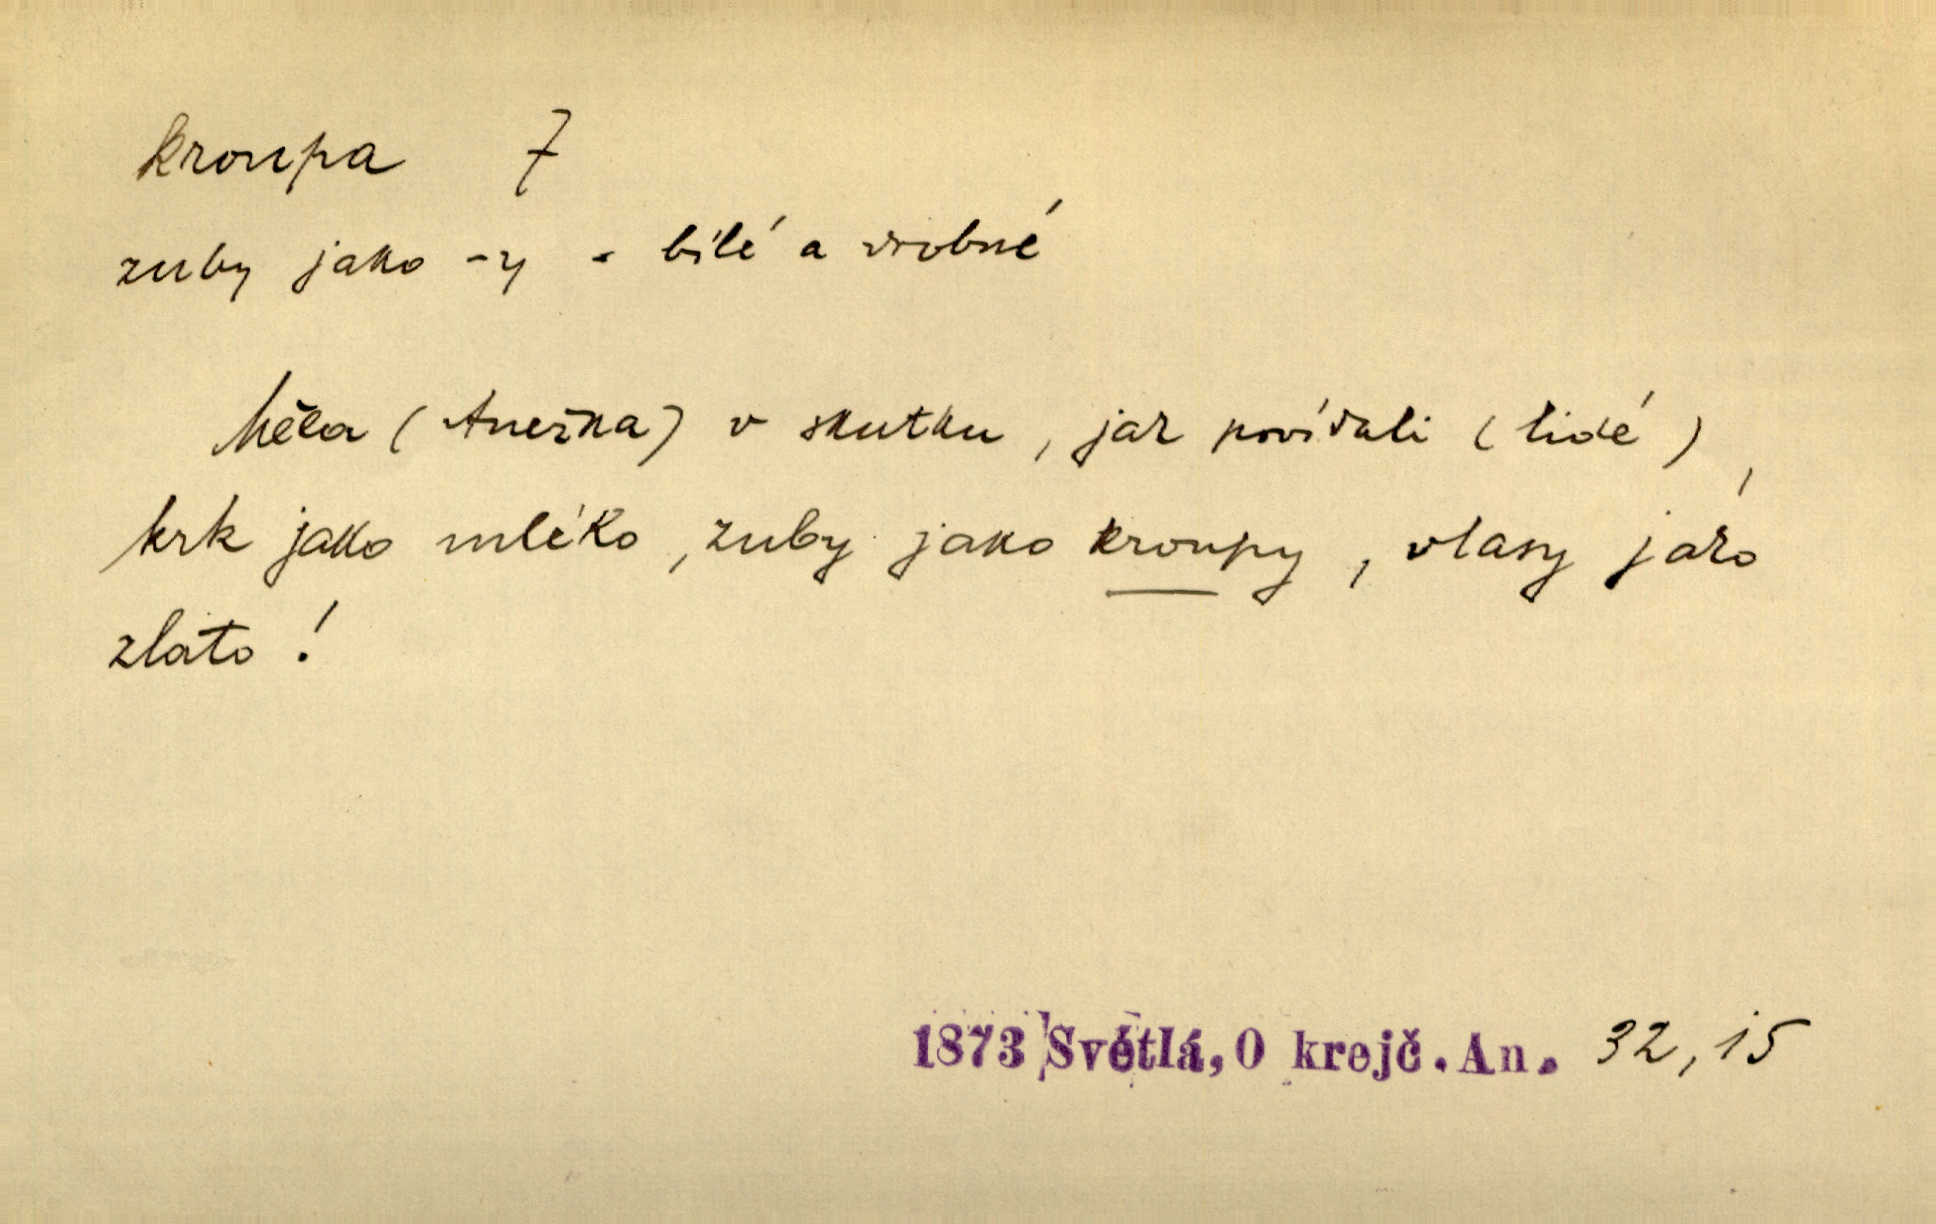 kroupa 7
zuby jako -y - bílé a drobné
Měla (Anežka) v skutku, jak povídali (lidé),
krk jako mléko, zuby jako kroupy, vlasy jako
zlato!
1873 Světlá, O krejč. An. 32, 15